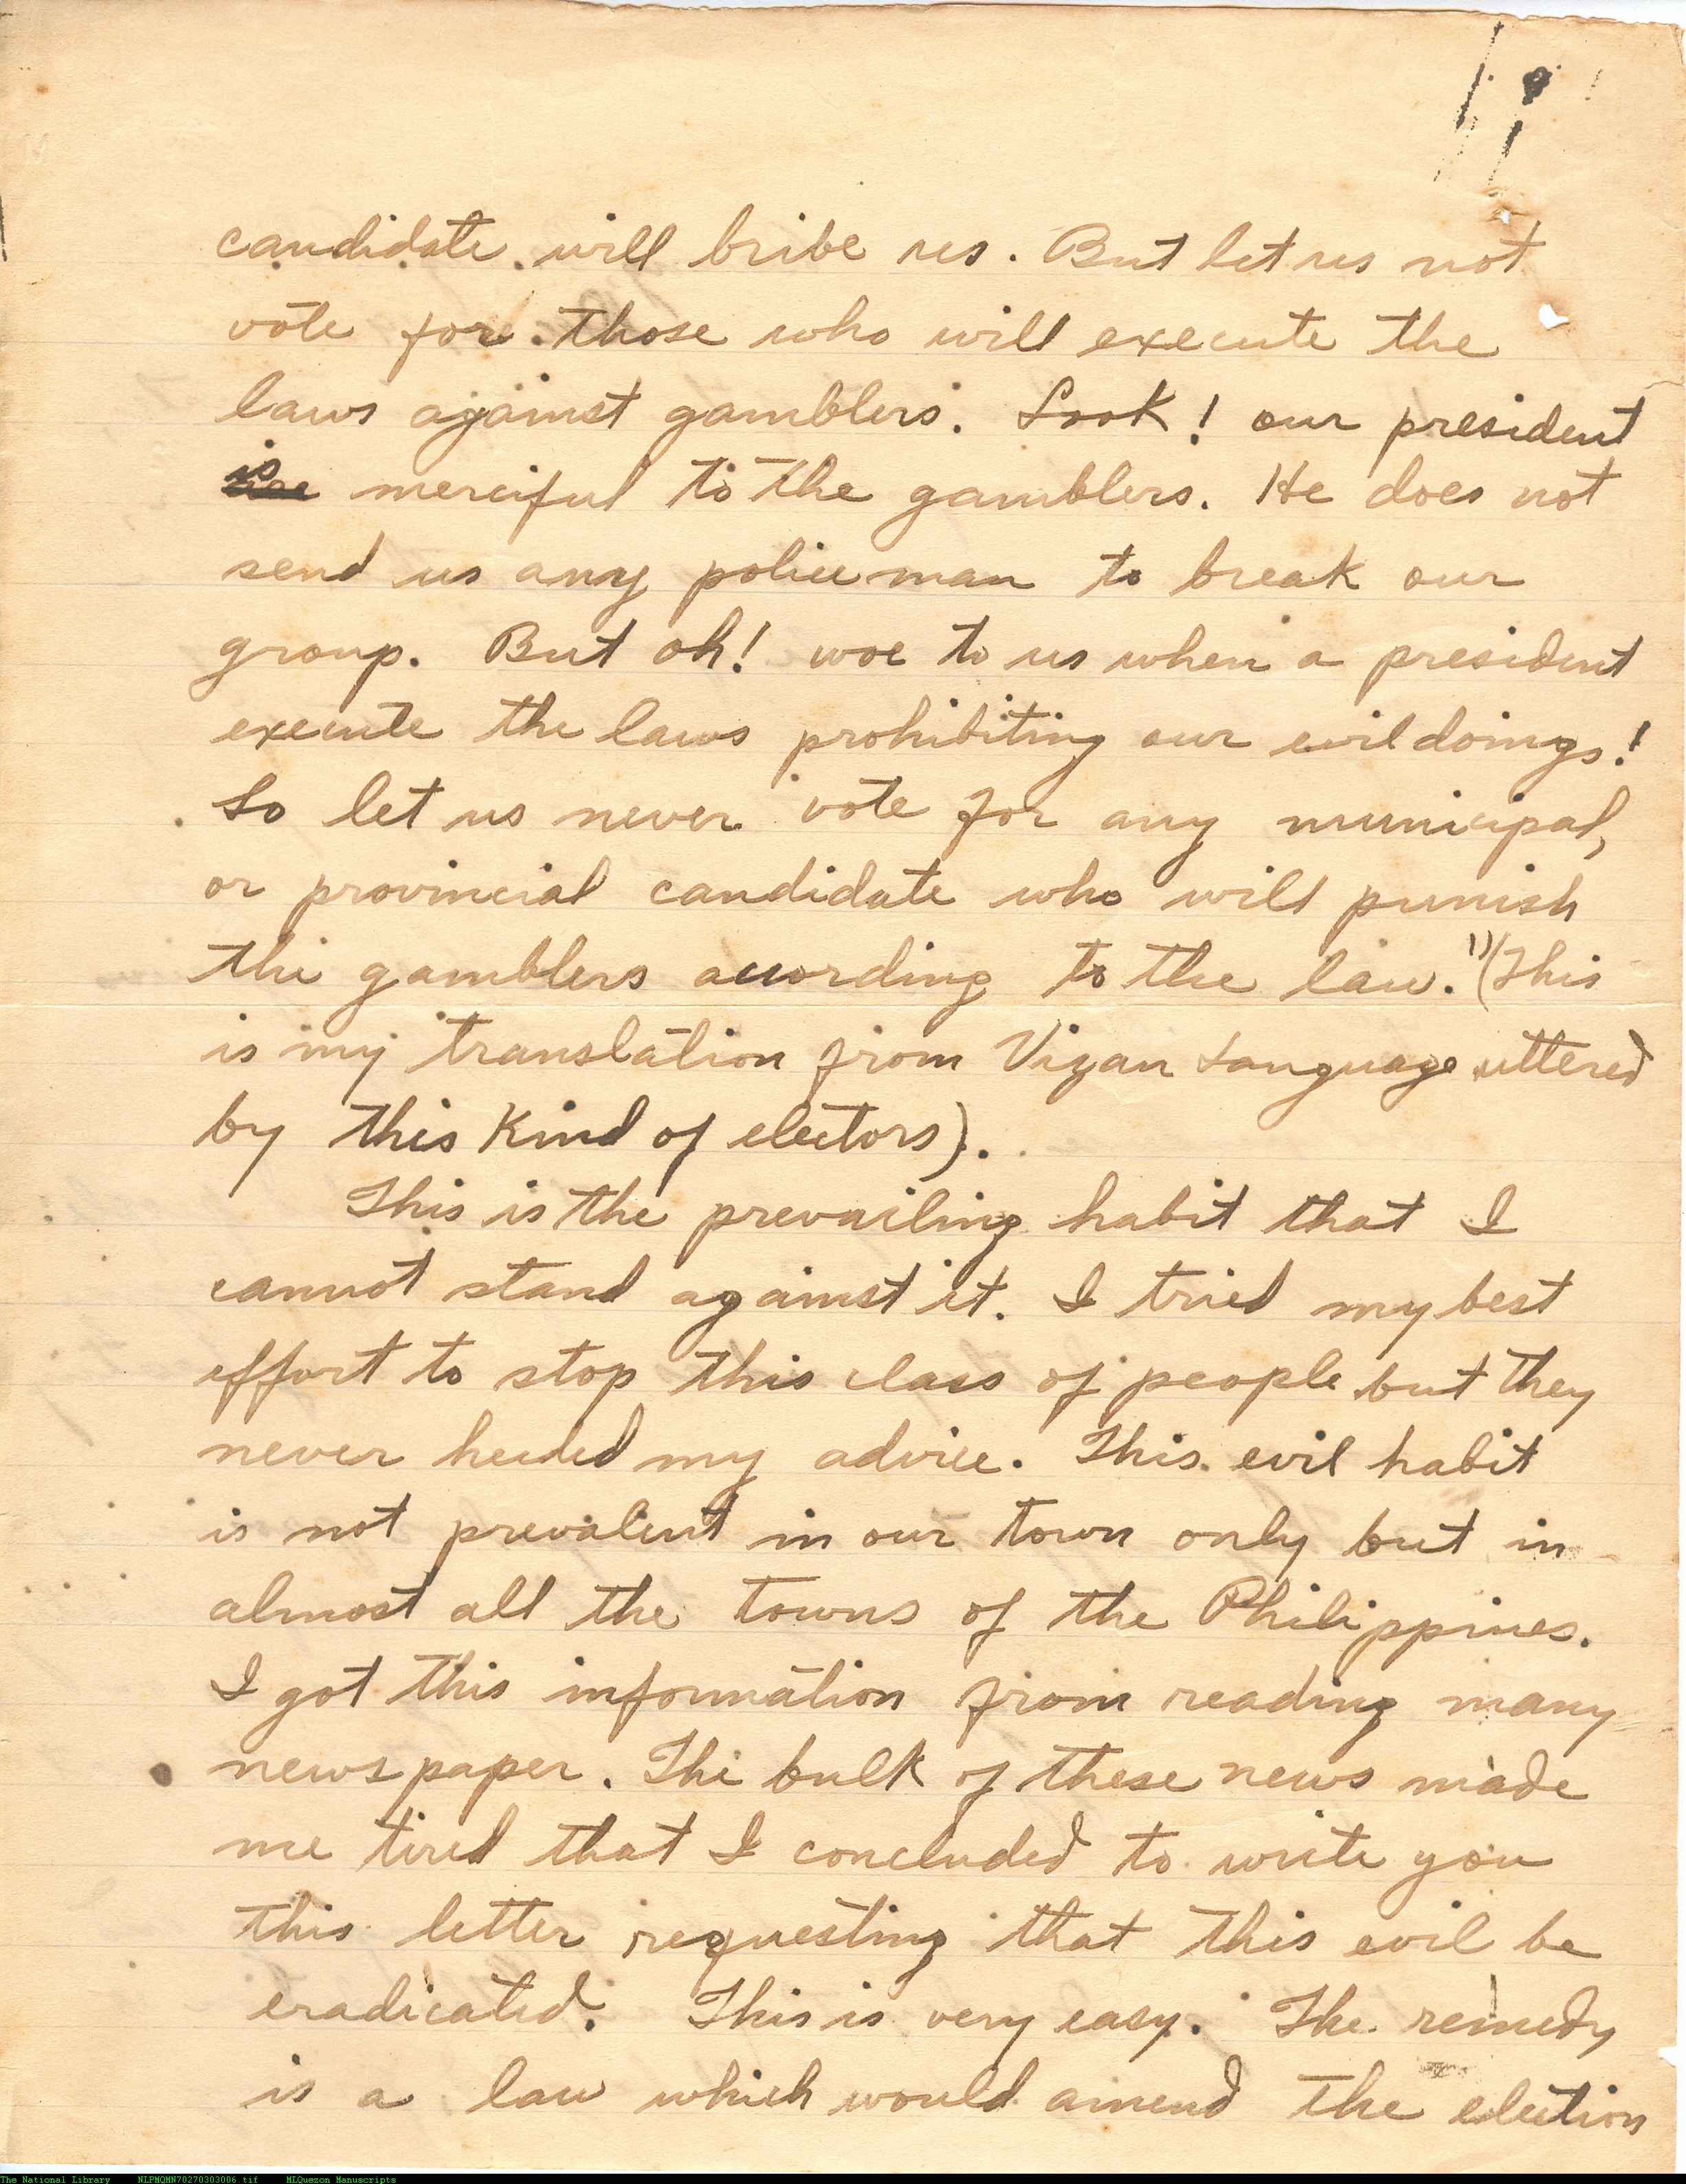 candidate will bribe us. But let us not
vote for those who will execute the
laws against gamblers. Look! our president
is merciful to the gamblers. He does not
send us any policeman to break our
group. But oh! woe to us when a president
execute the laws prohibiting our evil doings!
So let us never vote for any municipal,
or provincial candidate who will punish
the gamblers according to the law." (This
is my translation from Vigan Language uttered
by this kind of electors).
This is the prevailing habit that I
cannot stand against it. I tried my best
effort to stop this class of people but they
never heeded my advice. This evil habit
is not prevalent in our town only but in
almost all the towns of the Philippines.
I got this information from reading many
newspaper. The bulk of these news made
me tired that I concluded to write you
this letter requesting that this evil be
eradicated. This is very easy. The remedy
is a law which would amend the election
The National Library NLPMQMN70270303006.tif MLQuezon Manuscripts